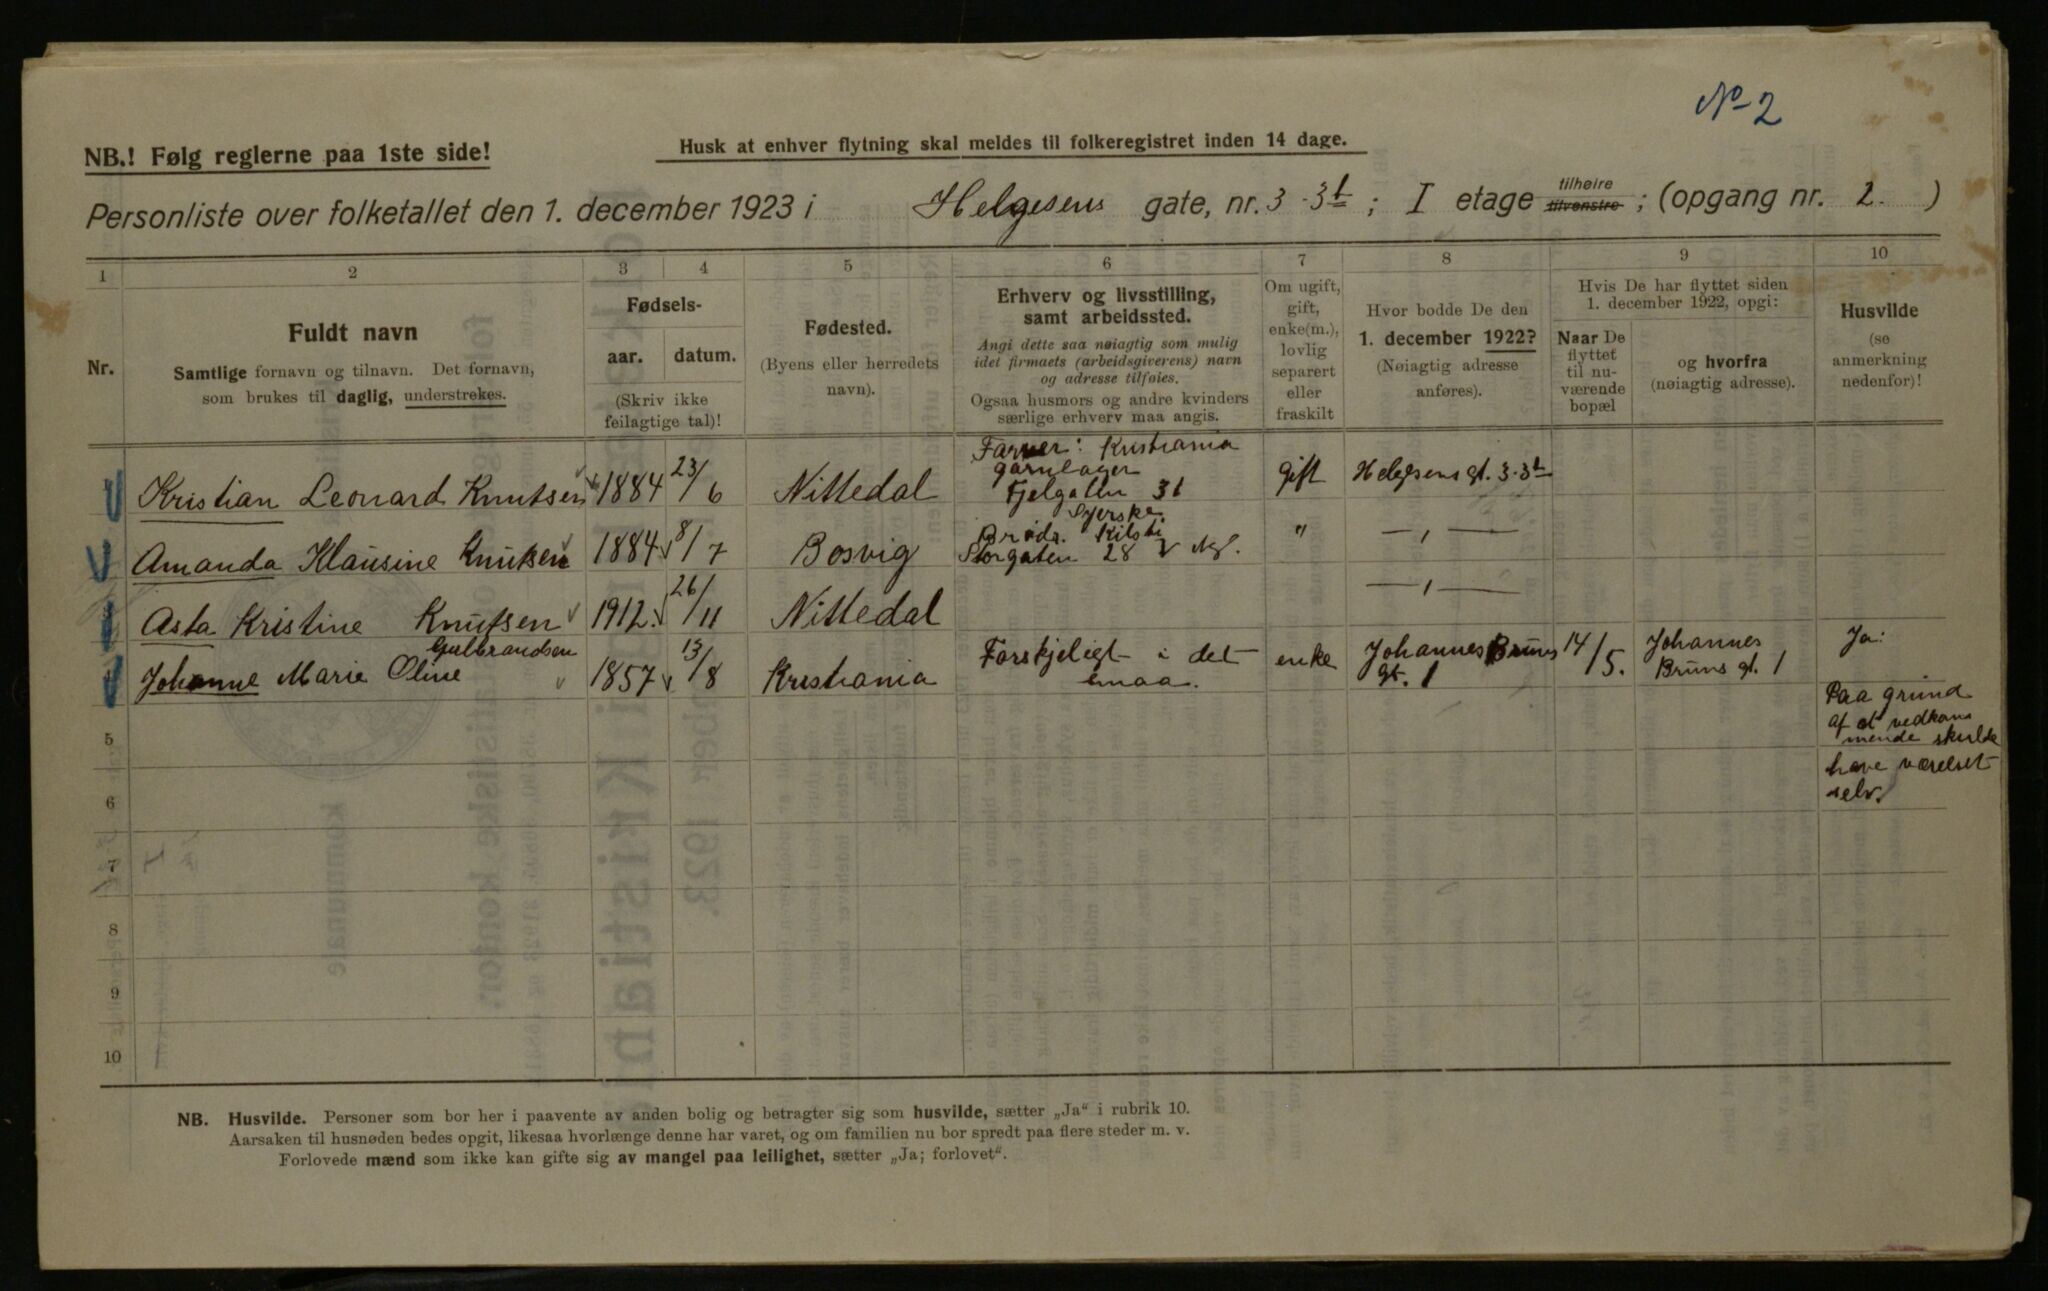 No 2
NB.! Følg reglerne paa 1ste side!
Husk at enhver flytning skal meldes til folkeregistret inden 14 dage.
Personliste over folketallet den 1. december 1923 i Helgesens gate, nr. 3 - 31; I etage tilhøire tilvenstre; (opgang nr. 2. )
1 2 3 4 5 6 7 8 9 10
Nr.
Fuldt navn
Samtlige fornavn og tilnavn. Det fornavn,
som brukes til daglig, understrekes.
Fødsels-
aar. datum.
(Skriv ikke
feilagtige tal)!
Fødested.
(Byens eller herredets
navn).
Erhverv og livsstilling,
samt arbeidssted.
Angi dette saa nøiagtig som mulig
idet firmaets (arbeidsgiverens) navn
og adresse tilføies.
Ogsaa husmors og andre kvinders
særlige erhverv maa angis.
Om ugift,
gift,
enke(m.),
lovlig
separert
eller
fraskilt
Hvor bodde De den
1. december 1922?
(Nøiagtig adresse
anføres).
Hvis De har flyttet siden
1. december 1922, opgi:
Naar De
flyttet
til nu-
værende
bopæl
og hvorfra
(nøiagtig adresse).
Husvilde
(se
anmerkning
nedenfor)!
Kristian Leonard Knutsen 1884 23/6 Nittedal
Farver: Kristiania
garnlager
Fjelgaten 31
gift Helgesens gt. 3-31
Amanda Klausine Knutsen 1884 8/7 Bosvig
Syerske.
Brødr.
Storgaten 28
" — „ —
Asta Kristine Knutsen 1912. 26/11 Nittedal — „ —
Gulbrandsen
Johanne Marie Oline 1857 13/8 Kristiania
Forskjeligt i det
smaa.
enke
Johannes Bruns
gt. 1
14/5.
Johannes
Bruns gt. 1
Ja:
Paa grund
af at vedkom
mende skulde
have værelset
selv.
5
6
7
8
9
10
NB. Husvilde. Personer som bor her i paavente av anden bolig og betragter sig som husvilde, sætter „Ja“ i rubrik 10.
Aarsaken til husnøden bedes opgit, likesaa hvorlænge denne har varet, og om familien nu bor spredt paa flere steder m. v.
Forlovede mænd som ikke kan gifte sig av mangel paa leilighet, sætter „Ja; forlovet“.